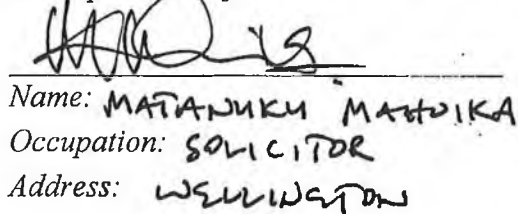 Name: MATANUKU MAHUIKA
Occupation: SOLICITOR
Address: WELLINGTON